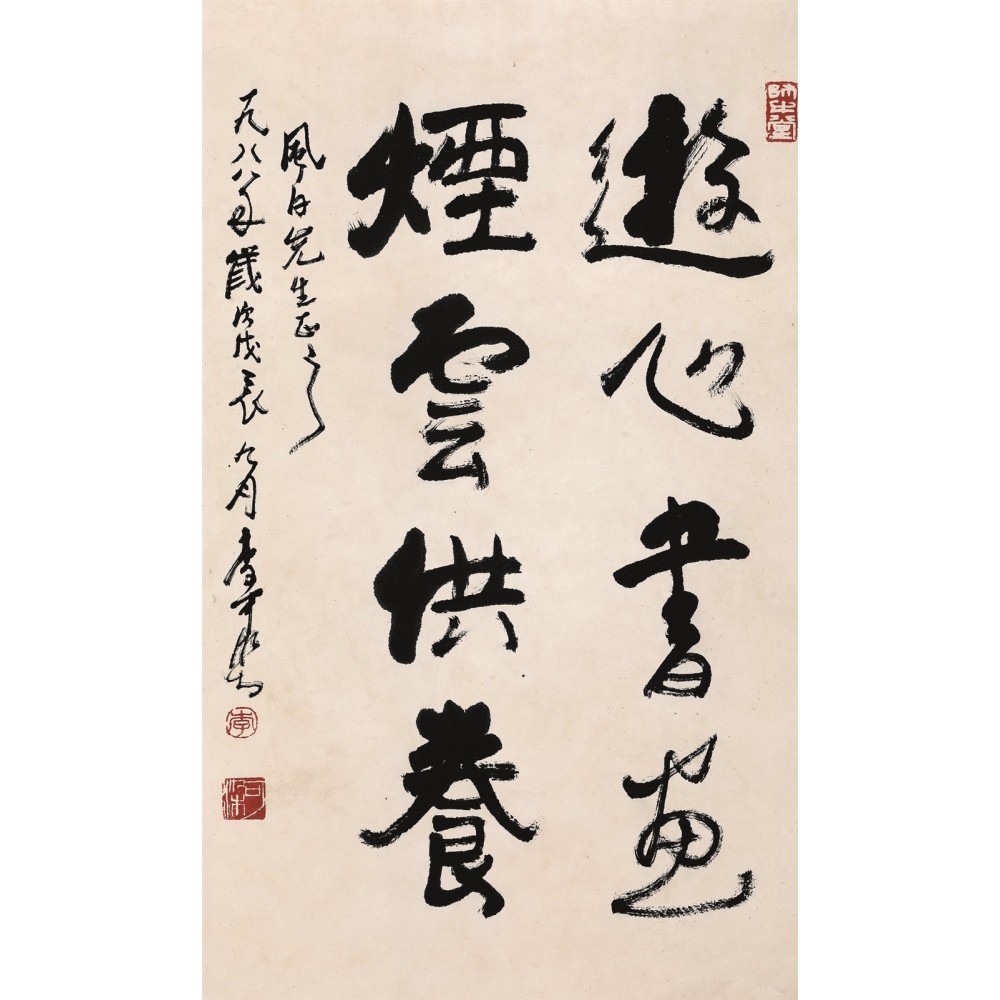 遊心書画
煙雲供養
風白先生正之
一九八八年歲次戊辰九月李可染
師牛堂
李
可染